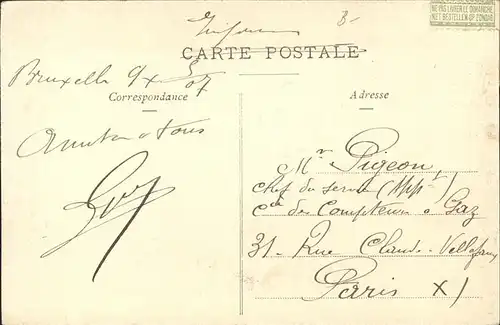 NE PAS LIVRER LE DIMANCHE
NIET BESTELLEN OP ZONDAG
CARTE POSTALE
Correspondance
Adresse
Bruxelles 9/X 07
à tous
Guy
Mr Pigeon,
Chef du service (App
Cie des Compteurs à Gaz
31 - Rue Claude-Vellefaux
Paris X